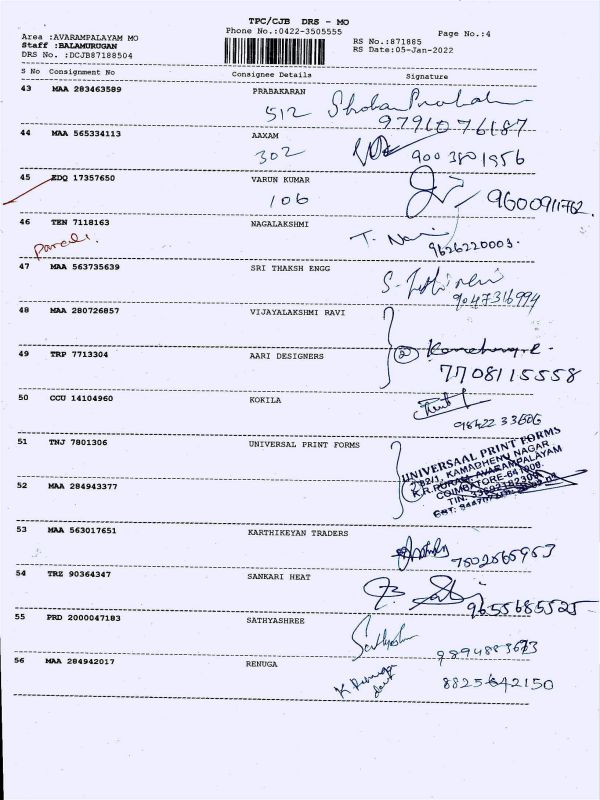 TPC/CJB DRS - MO
Phone No.:0422-3505555
Page No.:4
Area :AVARAMPALAYAM MO
Staff :BALAMURUGAN
DRS No. :DCJB87188504
RS No.:871885
RS Date:05-Jan-2022
S No Consignment No Consignee Details Signature
43 MAA 283463589 PRABAKARAN
512
9791076187
44 MAA 565334113 AAXAM
302
9003801956
45 EDQ 17357650 VARUN KUMAR
106 9600911762.
46 TEN 7118163 NAGALAKSHMI
9626220003.
47 MAA 563735639 SRI THAKSH ENGG
9047316994
48 MAA 280726857 VIJAYALAKSHMI RAVI
49 TRP 7713304 AARI DESIGNERS
2
7708115558
50 CCU 14104960 KOKILA
51 TNJ 7801306 UNIVERSAL PRINT FORMS
UNIVERSAAL PRINT FORMS
KAMADHENU NAGAR
AVARAMPALAYAM
COIMBATORE-641006.
52 MAA 284943377
53 MAA 563017651 KARTHIKEYAN TRADERS
54 TRZ 90364347 SANKARI HEAT
9655685525
55 PRD 2000047183 SATHYASHREE
56 MAA 284942017 RENUGA
K Renuga
8825642150